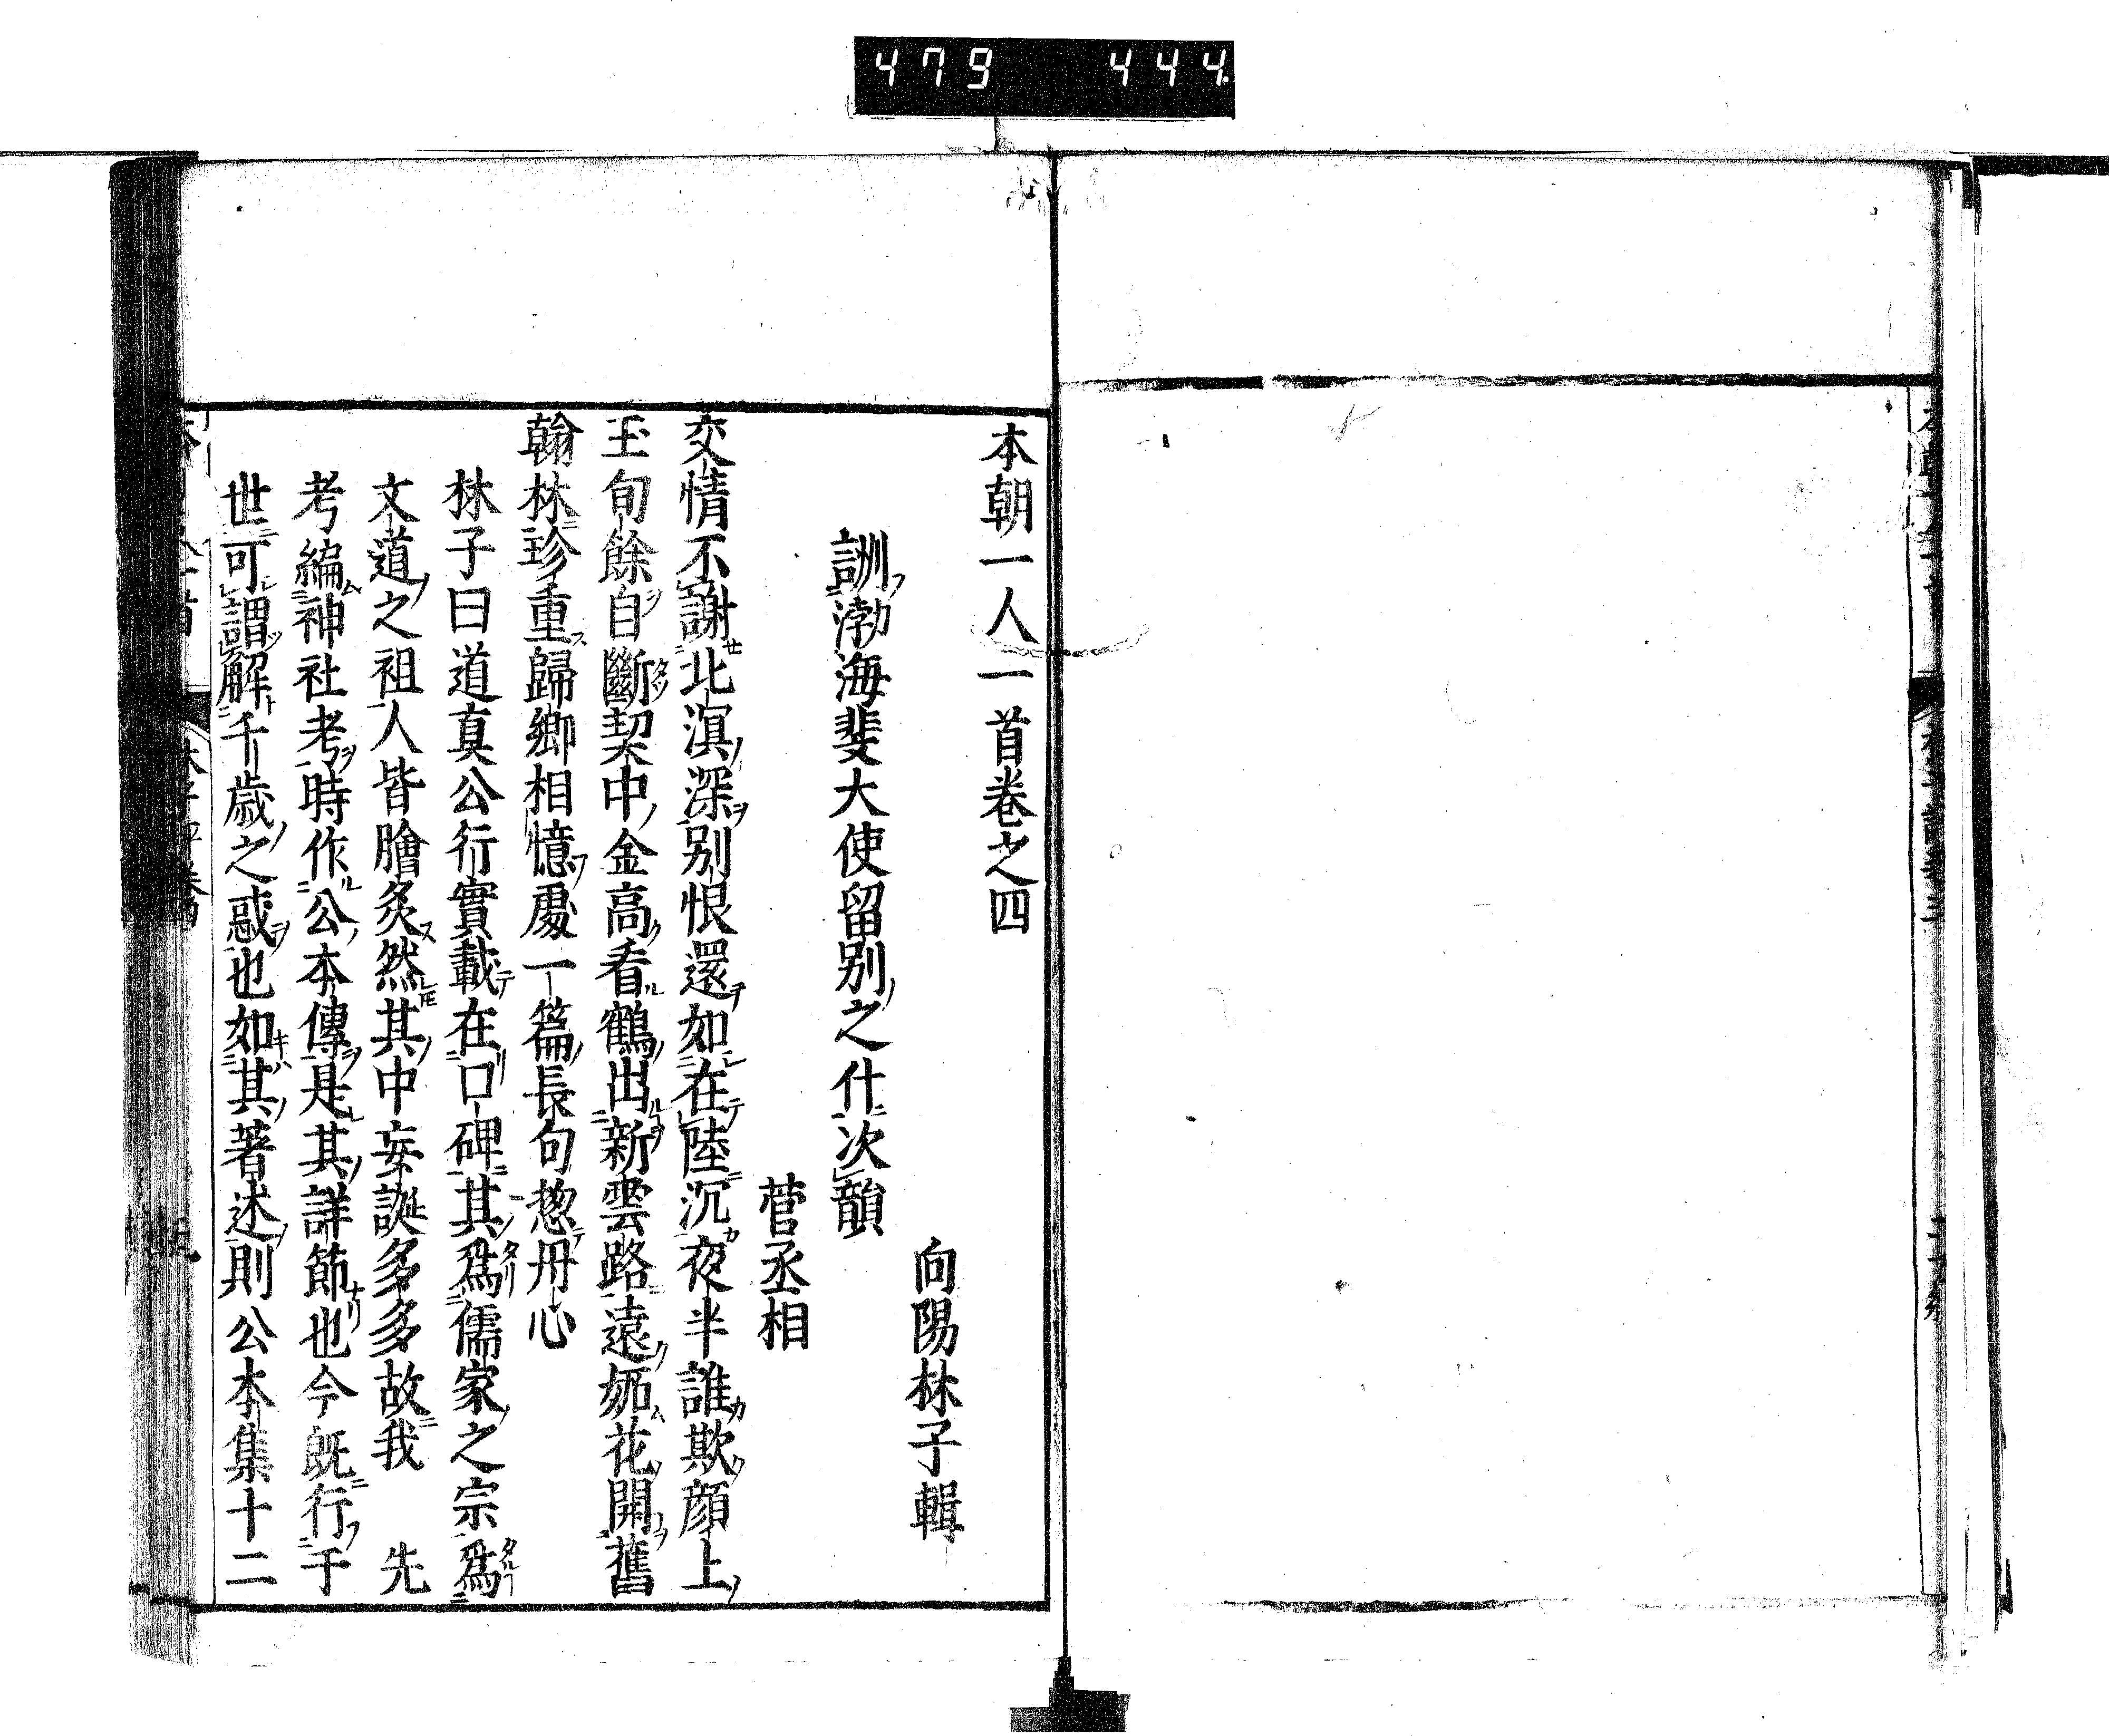 479 444
本朝一人一首卷之四
向陽林子輯
詶渤海斐大使留別之什次韻
菅丞相
交情不謝北溟深別恨還如在陸沉夜半誰欺顔上
玉旬餘自斷契中金高看鶴出新雲路遠妬花開舊
翰林珍重歸鄉相憶處一篇長句惣丹心
林子曰道真公行實載在口碑其爲儒家之宗爲
文道之祖人皆膾炙然其中妄誕多多故我 先
考編神社考時作公本傳是其詳節也今既行于
世可謂解千歳之惑也如其著述則公本集十二